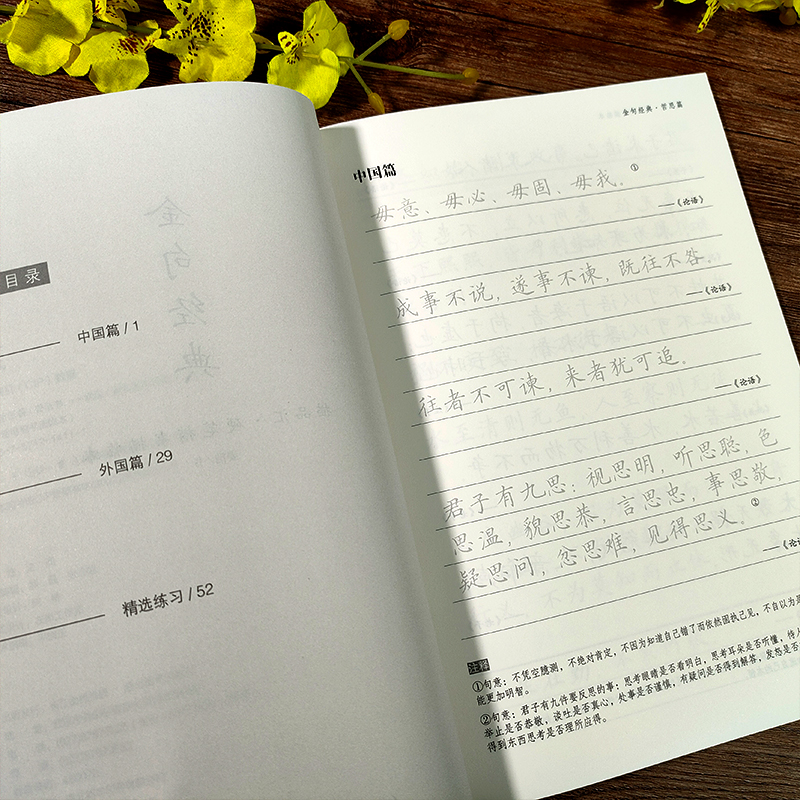 目录
中国篇/1
外国篇/29
精选练习/52
金句经典
金句经典·哲思篇
中国篇
毋意、毋必、毋固、毋我。①
——《论语》
成事不说，遂事不谏，既往不咎。
——《论语》
往者不可谏，来者犹可追。
——《论语》
君子有九思：视思明，听思聪，色
思温，貌思恭，言思忠，事思敬，
疑思问，忿思难，见得思义。②
——《论语
注释
①句意：不凭空臆测，不绝对肯定，不因为知道自己错了而依然固执己见，不自以为是
能更加明智。
②句意：君子有九件要反思的事：思考眼睛是否看明白，思考耳朵是否听懂，待人
举止是否恭敬，谈吐是否真心，处事是否谨慎，有疑问是否得到解答，发怒是否
得到东西思考是否理所应得。